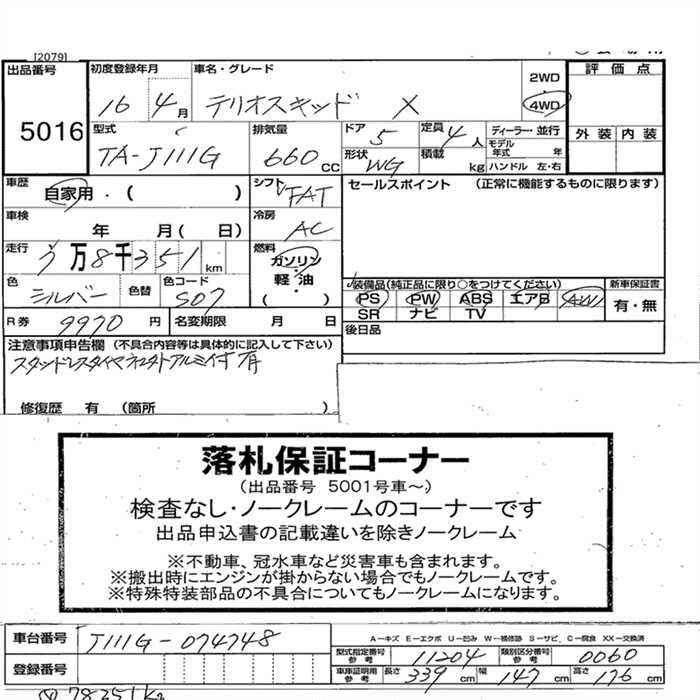 [2079]
出品番号 初度登録年月 車名・グレード 2WD 評価点
5016 16 4月 テリオスキッド X 4WD
型式 排気量 ドア 5 定員 4人 ディーラー・並行 外装 内装
TA-J111G 660CC 形状 WG 積載 kg モデル年式 年 ハンドル 左・右
車歴 自家用・( ) シフト FAT セールスポイント (正常に機能するものに限ります)
車検 年 月( 日) 冷房 AC
走行 7万8千351km 燃料 ガソリン 軽・油 ( )
色 シルバー 色替 色コード S07 装備品(純正品に限り○をつけてください) 新車保証書
PS PW ABS エアB AW 有・無
SR ナビ TV
R券 9970円 名変期限 月 日 後日品
注意事項申告欄 (不具合内容等は具体的に記入して下さい)
修復歴 有 (箇所 )
落札保証コーナー
(出品番号 5001号車~)
検査なし・ノークレームのコーナーです
出品申込書の記載違いを除きノークレーム
※不動車、冠水車など災害車も含まれます。
※搬出時にエンジンが掛からない場合でもノークレームです。
※特殊特装部品の不具合についてもノークレームになります。
車台番号 J111G-074748 A-キズ E-エクボ U-凹み W-補修跡 S-サビ、C-腐食 XX-交換済
型式指定番号 参考 11204 類別区分番号 参考 0060
登録番号 車庫証明用 参考 長さ 339cm 幅 147cm 高さ 176cm
78351km